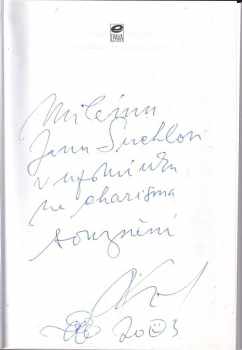 Milému
Janu Suchlovi
v upomínku
na charisma
souznění
2003